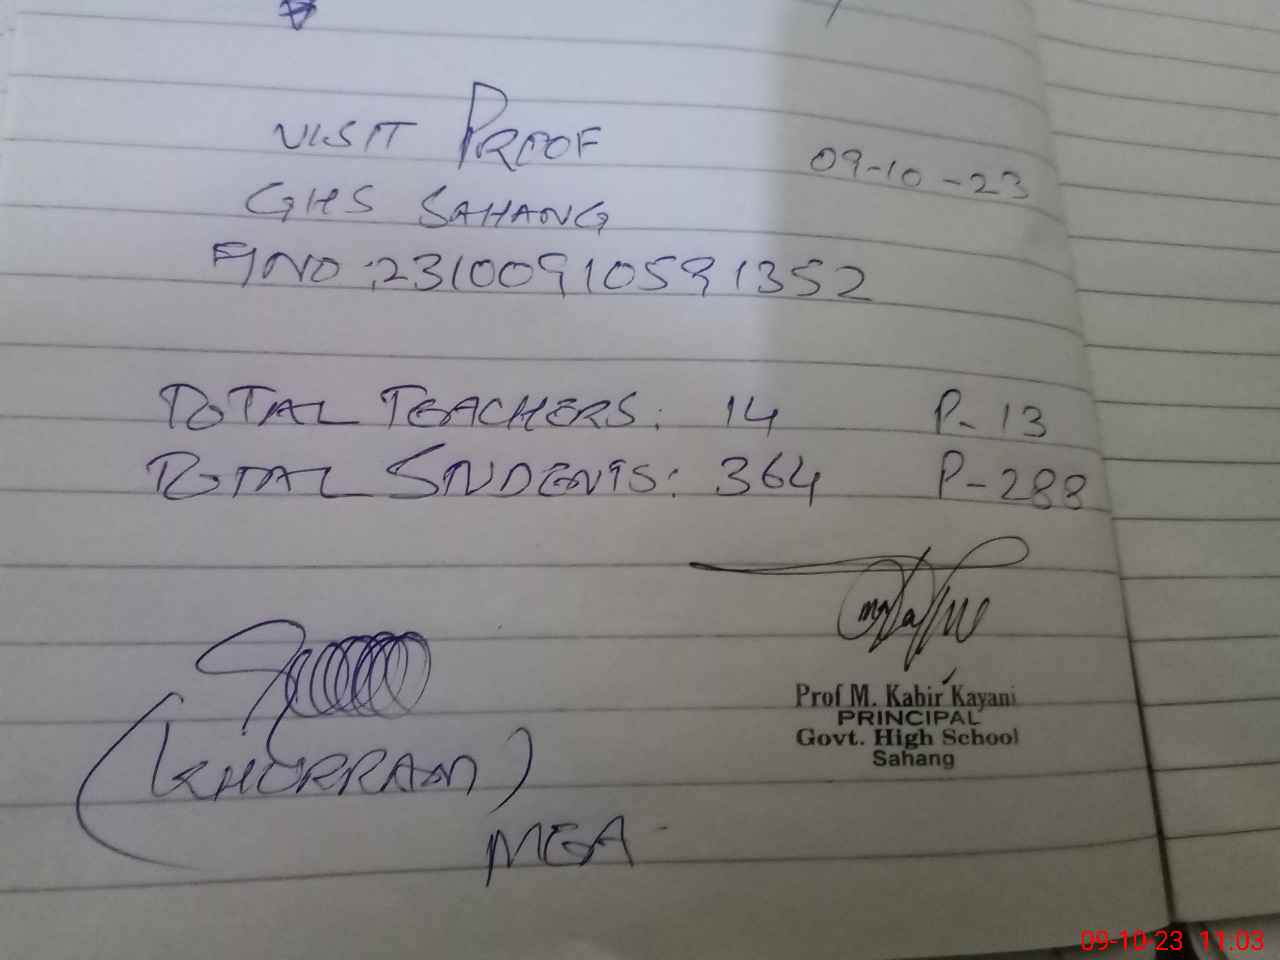 VISIT PROOF 09-10-23
GHS SAHANG
F/NO:23100910591352
TOTAL TEACHERS: 14 P-13
TOTAL STUDENTS: 364 P-288
(KHURRAM)
MEA
Prof M. Kabir Kayani
PRINCIPAL
Govt. High School
Sahang
09-10-23 11:03